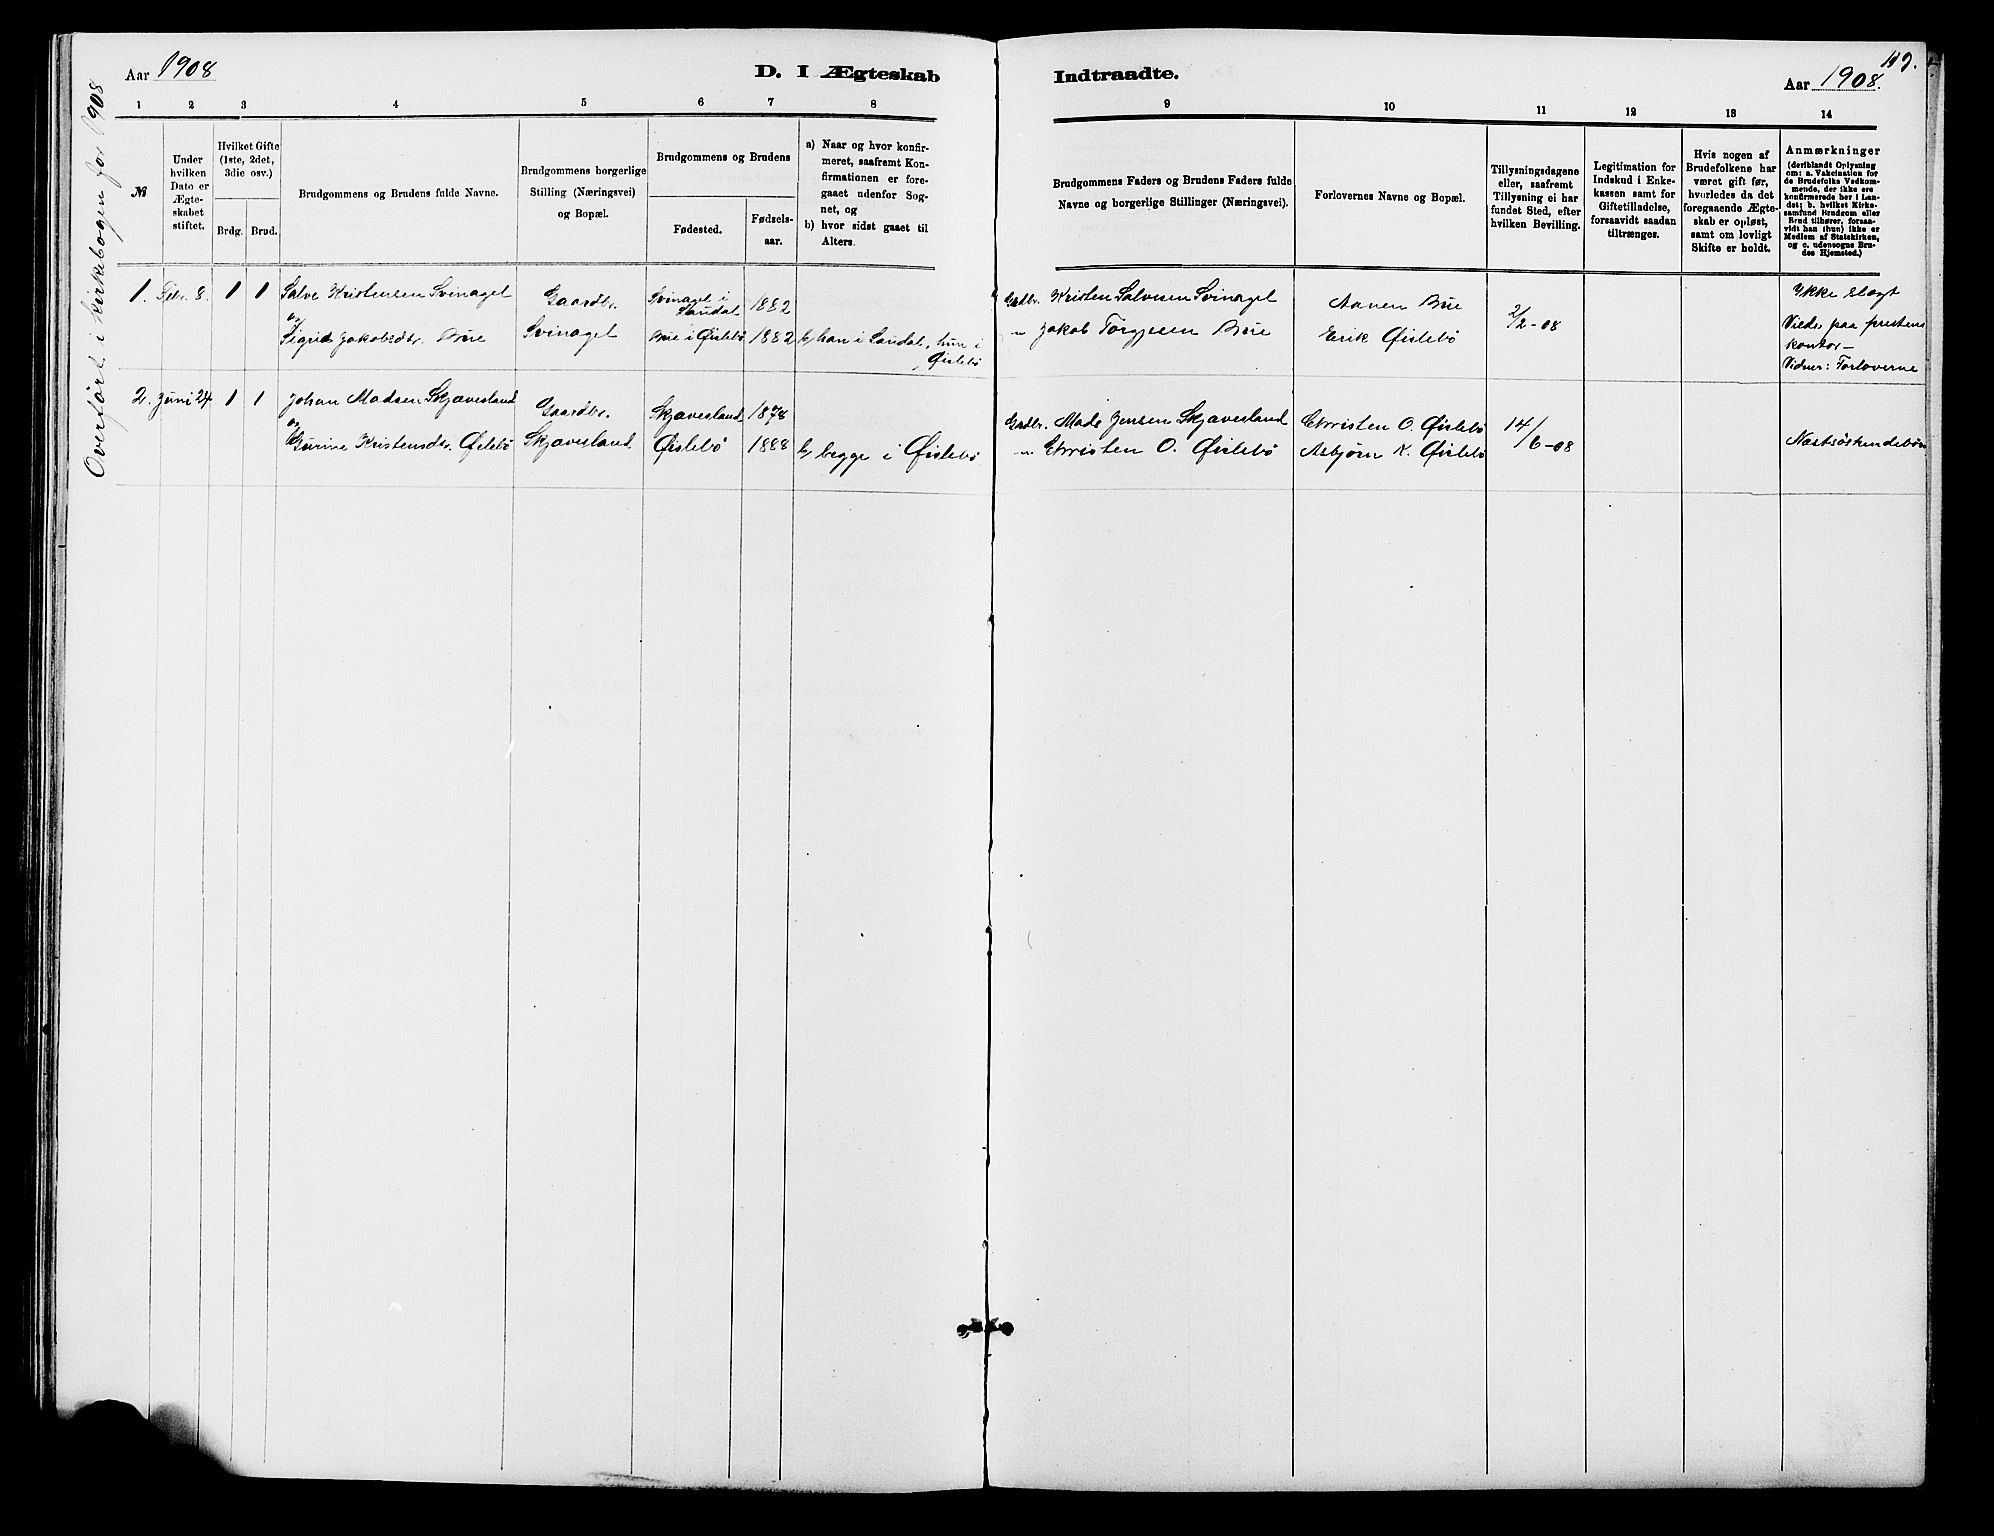 Aar 1908
D. I Ægteskab
Indtraadte.
Aar 1908.
Overført i kirkebogen for 1908
1 2 3 4 5 6 7 8 9 10 11 12 13 14
№
Under
hvilken
Dato er
Ægte-
skabet
stiftet.
Hvilket Gifte
(1ste, 2det,
3die osv.)
Brdg. Brud.
Brudgommens og Brudens fulde Navne.
Brudgommens borgerlige
Stilling (Næringsvei)
og Bopæl.
Brudgommens og Brudens
Fødested.
Fødsels-
aar.
a) Naar og hvor konfir-
meret, saafremt Kon-
firmationen er fore-
gaaet udenfor Sog-
net, og
b) hvor sidst gaaet til
Alters.
Brudgommens Faders og Brudens Faders fulde
Navne og borgerlige Stillinger (Næringsvei).
Forlovernes Navne og Bopæl.
Tillysningsdagene
eller, saafremt
Tillysning ei har
fundet Sted, efter
hvilken Bevilling.
Legitimation for
Indskud i Enke-
kassen samt for
Giftetilladelse,
forsaavidt saadan
tiltrænges.
Hvis nogen af
Brudefolkene har
været gift før,
hvorledes da det
foregaaende Ægte-
skab er opløst,
samt om lovligt
Skifte er holdt.
Anmærkninger
(deriblandt Oplysning
om: a. Vakcination for
de Brudefolks Vedkom-
mende, der ikke ere
konfirmerede her i Lan-
det; b. hvilket Kirke-
samfund Brudgom eller
Brud tilhører, forsaa-
vidt han (hun) ikke er
Medlem af Statskirken,
og c. udensogns Bru-
des Hjemsted.)
1. Febr. 8. 1 1 Salve Kristensen Svinagel Gaardbr. Svinagel i Laudal 1882 Gadbr. Kristen Salvesen Svinagel Aanen Bue 2/2-08 Ikke slægt
og
Sigrid Jakobsdtr. Bue Svinagel Bue i Øislebø 1882 b, han i Laudal, hun i Øislebø " Jakob Torgjesen Bue Erik Øislebø Viedes paa prestens
kontor—
Vidner: Forloverne
2. Juni 24 1 1 Johan Madsen Skjævesland Gaardbr. Skjævesland 1878 Gadbr. Mads Jensen Skjævesland Christen O. Øislebø 14/6-08
og
Gurine Kristensdtr. Øislebø Skjævesland Øislebø 1888 b, begge i Øislebø " Christen O. Øislebø Asbjørn K. Øislebø Næstsøskendebørn